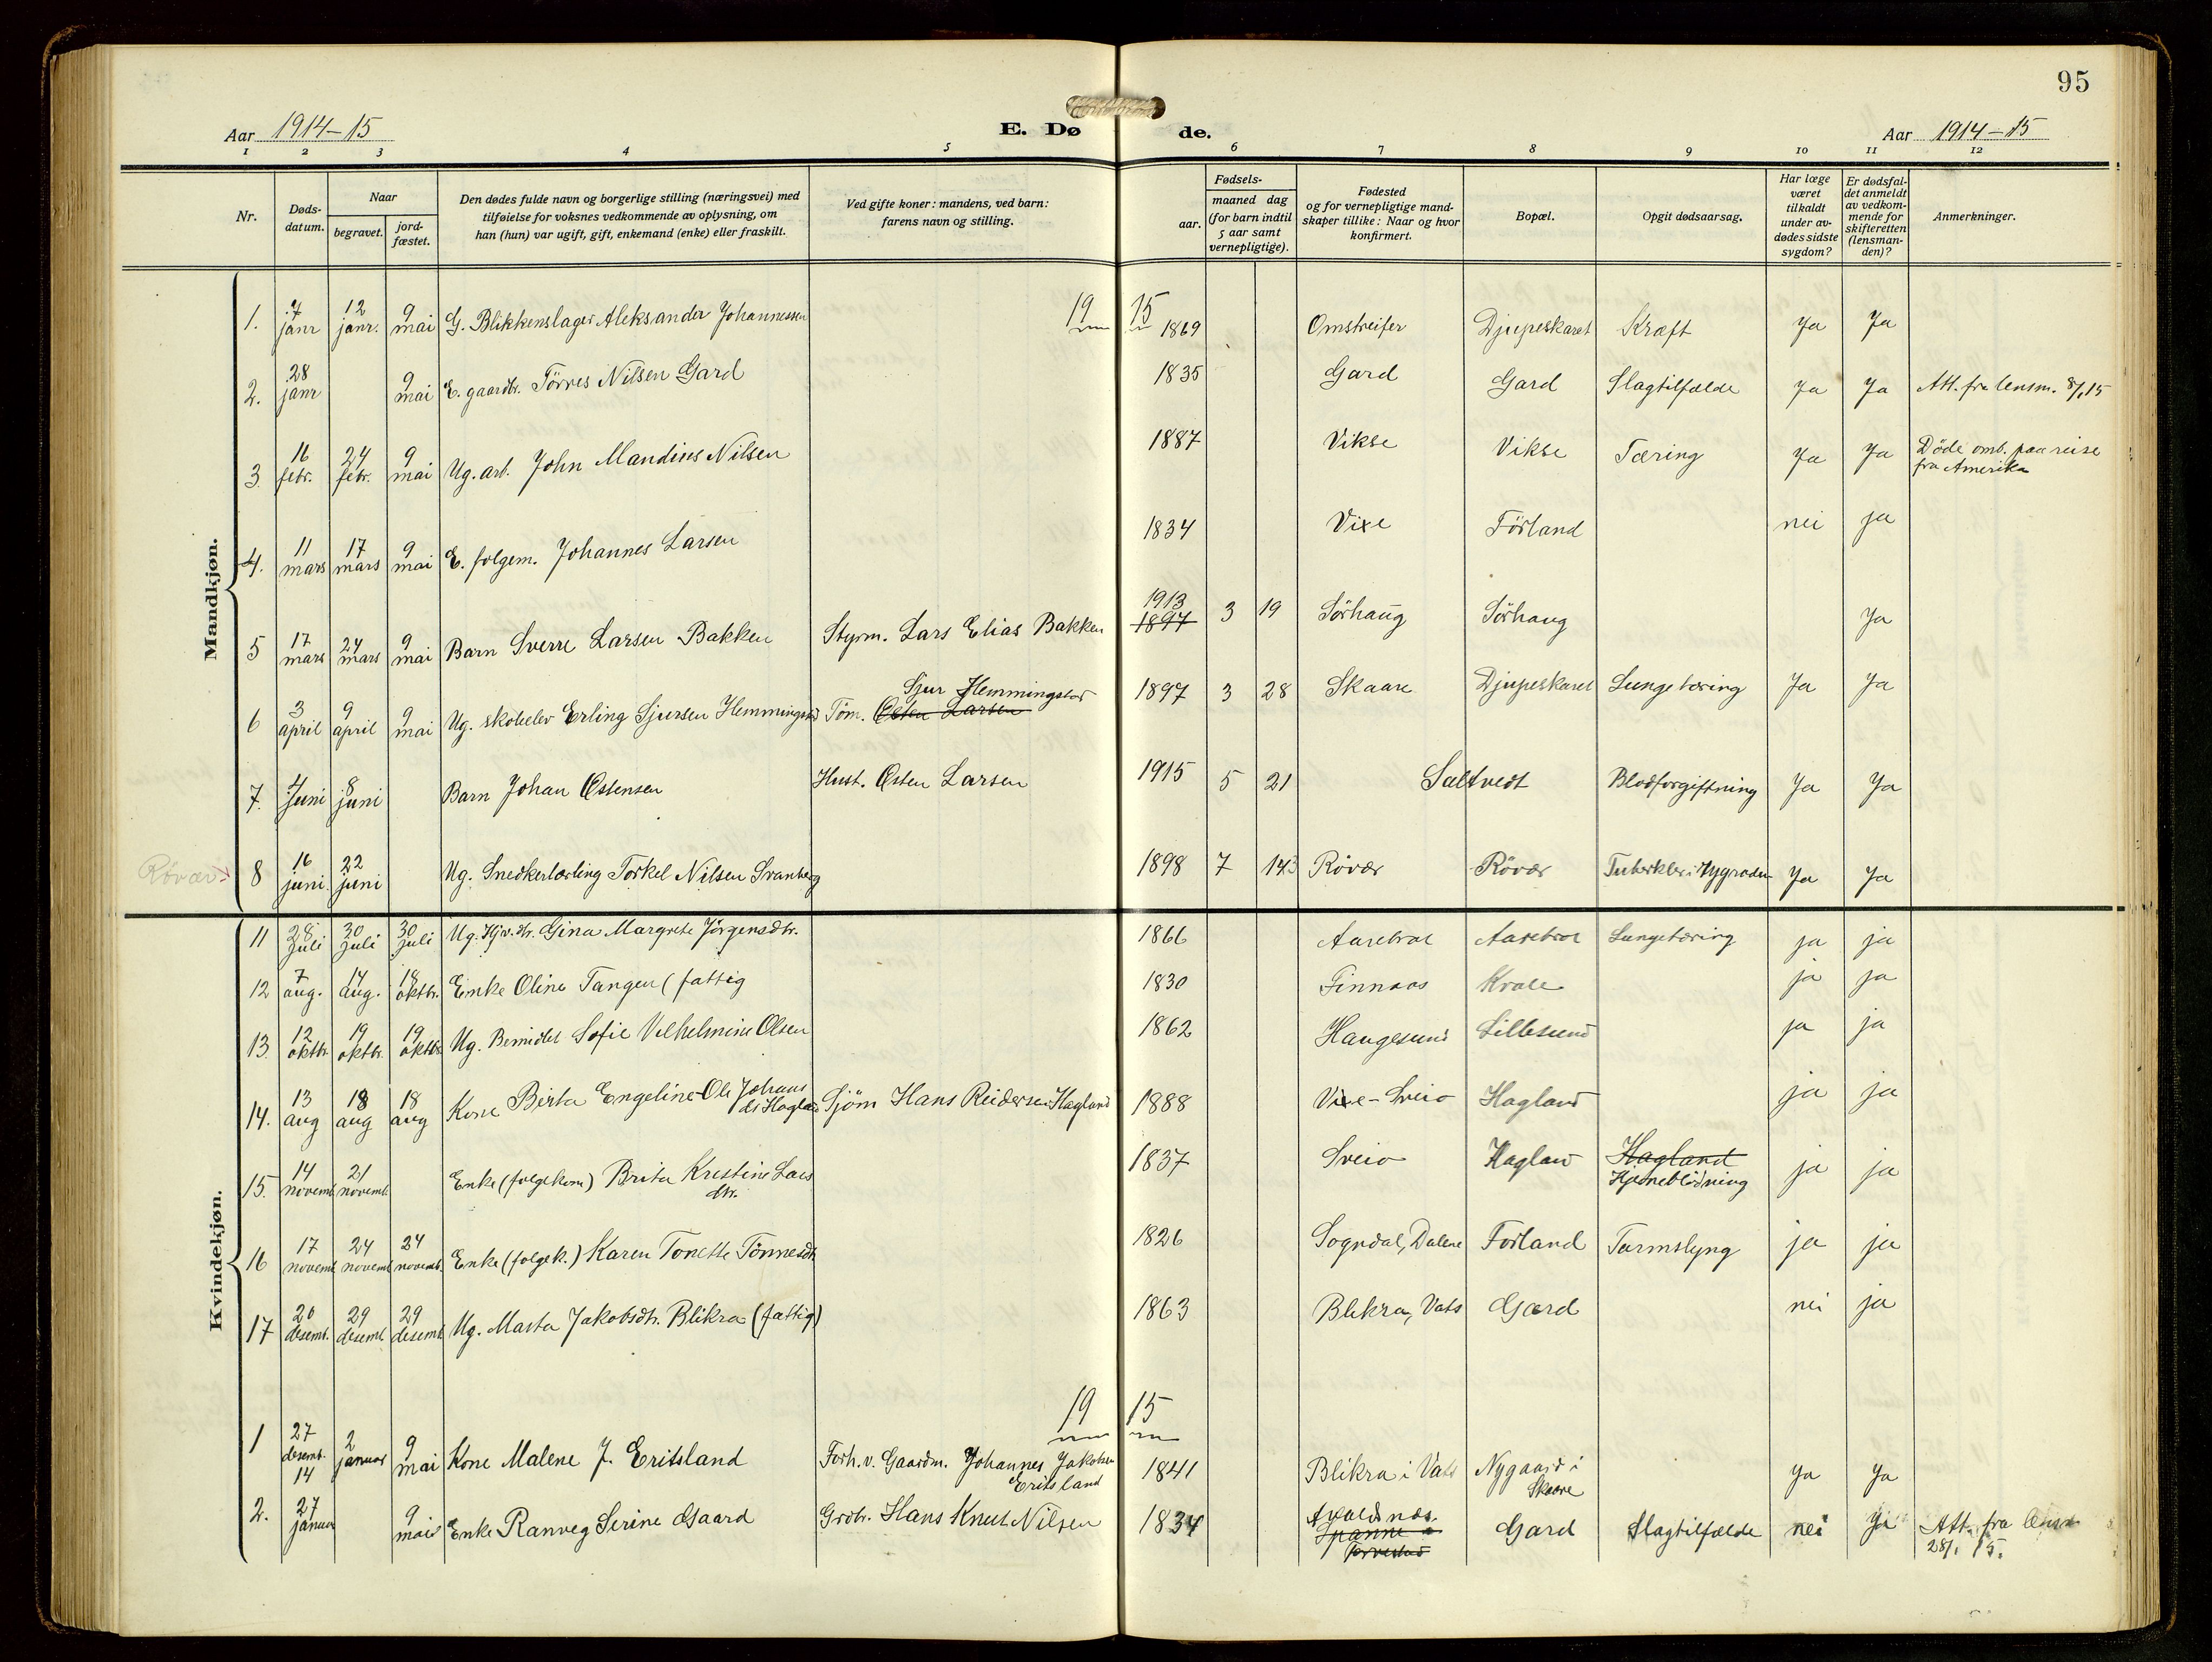 95
Aar 1914-15
E. Dø de.
Aar 1914-15
1 2 3 4 5 6 7 8 9 10 11 12
Nr.
Døds-datum.
Naar
begravet.
jord-fæstet.
Den dødes fulde navn og borgerlige stilling (næringsvei) med
tilføielse for voksnes vedkommende av oplysning, om
han (hun) var ugift, gift, enkemand (enke) eller fraskilt.
Ved gifte koner: mandens, ved barn:
farens navn og stilling.
Fødsels-
aar.
maaned dag
(for barn indtil
5 aar samt
vernepligtige).
Fødested
og for vernepligtige mand-
skaper tillike: Naar og hvor
konfirmert.
Bopæl.
Opgit dødsaarsag.
Har læge
været
tilkaldt
under av-
dødes sidste
sygdom?
Er dødsfal-
det anmeldt
av vedkom-
mende for
skifteretten
(lensman-
den)?
Anmerkninger.
Mandkjøn.
19 15
1. 7 janr 12 janr. 9 mai G. Blikkenslager Aleksander Johannessen 1869 Omstreifer Djupeskaret Kræft Ja Ja
2. 28 janr 9 mai E. gaardbr. Törres Nilsen Gard 1835 Gard Gard Slagtilfælde Ja Ja Att. fra lensm. 8/2 15
3. 16 febr. 24 febr. 9 mai Ug. arb. John Mandius Nilsen 1887 Vikse Vikse Tæring Ja Ja Döde omb. paa reise
fra Amerika
4. 11 mars 17 mars 9 mai E. folgem. Johannes Larsen 1834 Vixe Förland nei ja
5 17 mars 24 mars 9 mai Barn Sverre Larsen Bakken Styrm. Lars Elias Bakken 1913 1897 3 19 Sörhaug Sörhaug Ja
6 3 april 9 april 9 mai Ug. skoleelev Erling Sjursen Hemmingstad Töm. Sjur Hemmingstad Østen Larsen 1897 3 28 Skaare Djupeskaret Lungetæring Ja Ja
7. 4 Juni 8 juni Barn Johan Østensen Hust. Østen Larsen 1915 5 21 Saltvedt Blodforgiftning Ja Ja
Rövær 8 16 juni 22 juni Ug. Snedkerlærling Torkel Nilsen Svanberg 1898 7 143 Rövær Rövær Tuberkler i Rygraden Ja Ja
Kvindekjøn.
11 28 Juli 30 Juli 30 Juli Ug. Gina Margrete Jörgensdtr. 1866 Aarebrot Aarebrot Lungetæring ja ja
12 7 aug. 14 aug. 18 oktbr. Enke Oline Tangen (fattig 1830 Finnaas Kvale ja ja
13. 12 oktbr. 19 oktbr. 19 oktbr. Ug. Bemidlet Sofie Vilhelmine Olsen 1862 Haugesund Lillesund ja ja
14. 13 aug 18 aug 18 aug Kone Birta Engeline Ole Johans
dt Hagland Sjöm Hans Reidersen Hagland 1888 Vixe-Sveio Hagland ja ja
15. 14 novemb. 21 novemb. Enke (folgekone) Brita Kristine Lars
dtr. 1837 Sveio Hagland Hagland
Hjerneblödning ja ja
16 17 novemb. 24 novemb. 24 novemb. Enke (folgek.) Karen Tonette Tönnesdtr. 1826 Sogndal, Dalene Förland Tarmslyng ja ja
17 20 desemb. 29 desemb. 29 desemb. Ug. Marta Jakobsdtr. Blikra (fattig) 1863 Blikra, Vats Gard nei ja
19 15
1 27 desemb. 14 2 januar 9 mai Kone Malene J. Eritsland Forh.v. Gaardm. Johannes Jakobsen
Eritsland 1841 Blikra i Vats Nygaard i
Skaare Ja Ja
2. 27 januar 9 mai Enke Ranveg Serine Gaard Grdbr. Hans Knut Nilsen 1834 Avaldsnes
Spanne
Torvestad Gard Slagtilfælde nei Ja Att. fra lensm
28/1 15.